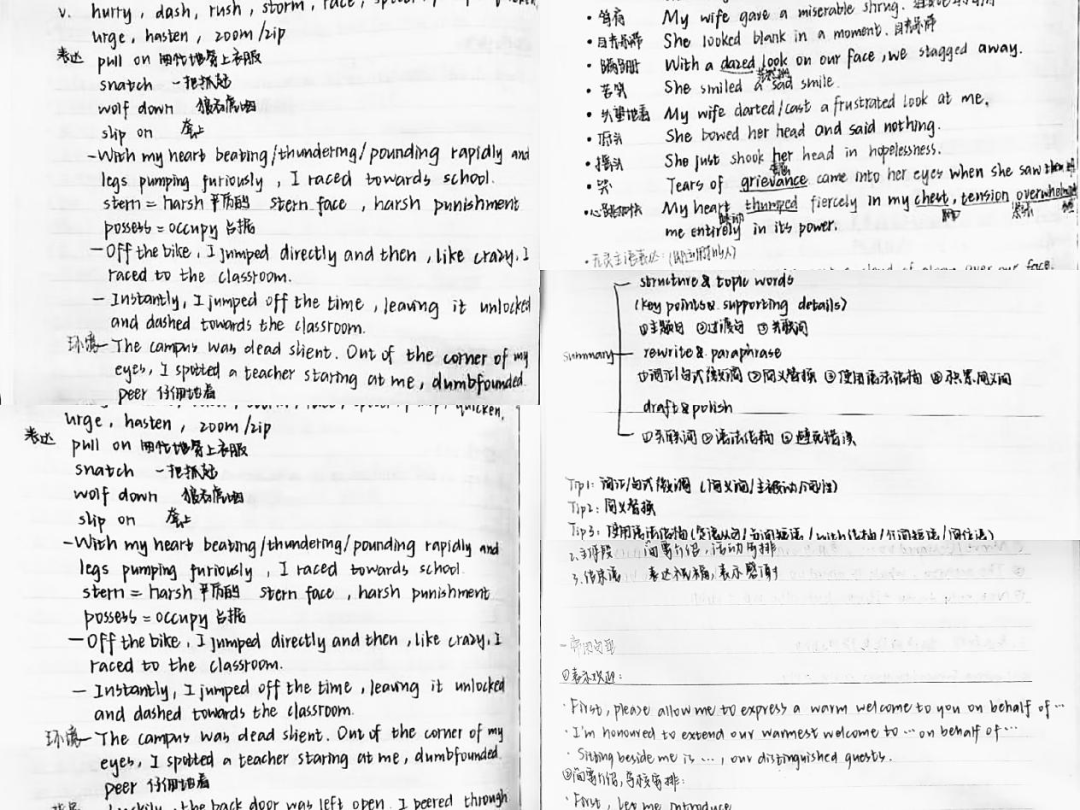 v. hurry, dash, rush, storm, race,
urge, hasten, zoom/zip
表达 pull on 困扰地穿上衣服
snatch 一把抓起
wolf down 狼吞虎咽
slip on 套上
-With my heart beating/thundering/pounding rapidly and
legs pumping furiously, I raced towards school.
stern = harsh 严厉的 stern face, harsh punishment
possess = occupy 占据
-Off the bike, I jumped directly and then, like crazy, I
raced to the classroom.
- Instantly, I jumped off the time, leaving it unlocked
and dashed towards the classroom.
环境- The campus was dead slient. Out of the corner of my
eyes, I spotted a teacher staring at me, dumbfounded.
peer 仔细地看
urge, hasten, zoom/zip
表达 pull on 穿上衣服
snatch 一把抓起
wolf down 狼吞虎咽
slip on 套上
-With my heart beating/thundering/pounding rapidly and
legs pumping furiously, I raced towards school.
stern = harsh 严厉的 stern face, harsh punishment
possess = occupy 占据
- Off the bike, I jumped directly and then, like crazy, I
raced to the classroom.
- Instantly, I jumped off the time, leaving it unlocked
and dashed towards the classroom.
环境- The campus was dead slient. Out of the corner of my
eyes, I spotted a teacher staring at me, dumbfounded.
peer 仔细地看
the back door was left open. I peered through
• 耸肩 My wife gave a miserable shrug.
• She looked blank in a moment.
• With a dazed look on our face, we stagged away.
• 苦笑 She smiled a sad smile.
• My wife darted/cast a frustrated look at me.
• She bowed her head and said nothing.
• 摇头 She just shook her head in hopelessness.
• 哭 Tears of grievance came into her eyes when she saw
• My heart thumped fiercely in my chest, tension overwhelmed
me entirely in its power.
structure & topic words
(key points & supporting details)
①主题句 ②过渡句 ③关联词
summary rewrite & paraphrase
①词汇/句式微调 ②同义替换 ③使用语法结构 ④积累同义词
draft & polish
①关联词 ②语法结构 ③避免错误
Tip1: 词汇/句式微调 (同义词/主被动/)
Tip2: 同义替换
Tip3: 使用语法结构
2.主体段 简要介绍,活动安排
3.结束语 表达祝福,表示感谢
- 常用句型
①表示欢迎:
· First, please allow me to express a warm welcome to you on behalf of …
· I'm honoured to extend our warmest welcome to … on behalf of …
· Sitting beside me is …, our distinguished guests.
②简要介绍,
· First, let me introduce